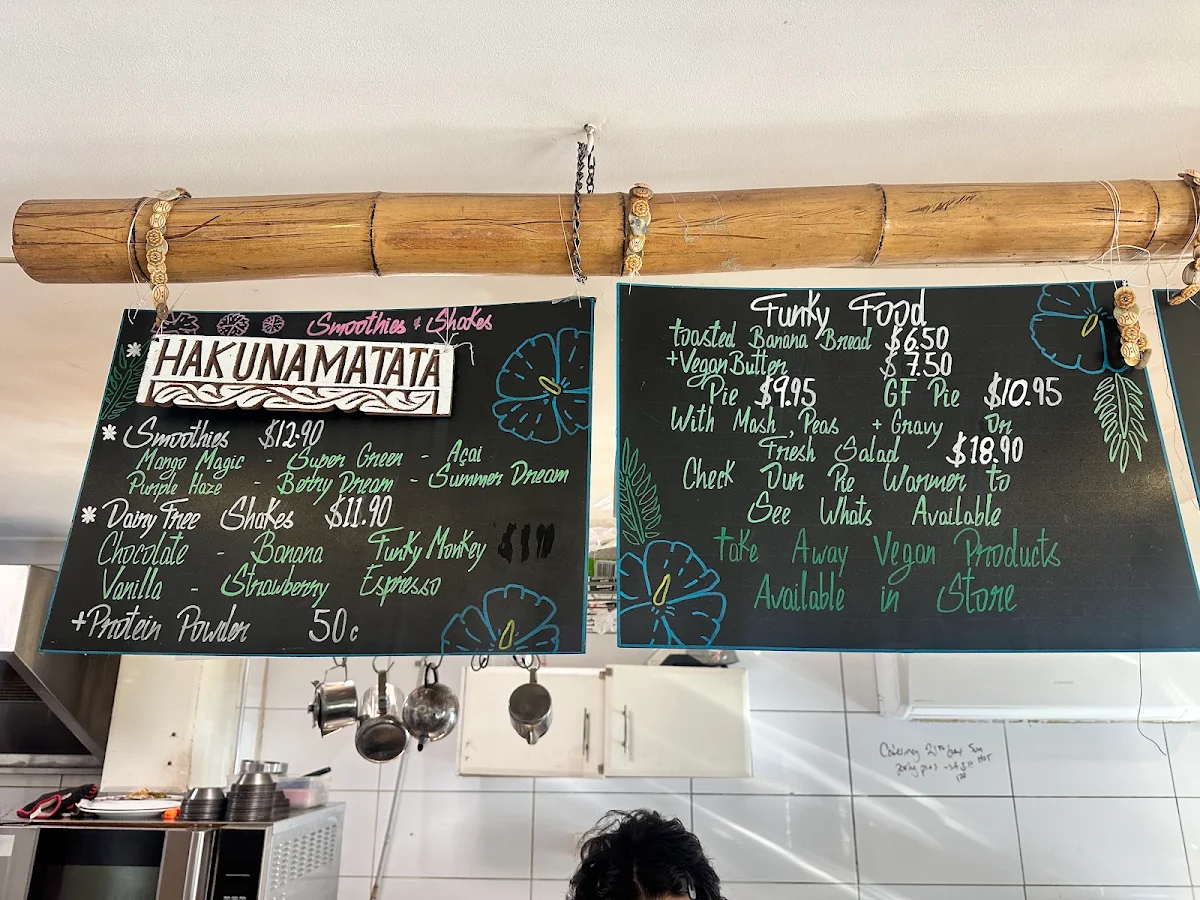 Smoothies & Shakes
HAKUNAMATATA
* Smoothies $12.90
Mango Magic - Super Green - Açai
Purple Haze - Berry Dream - Summer Dream
* Dairy Free Shakes $11.90
Chocolate - Banana Funky Monkey
Vanilla - Strawberry Espresso
+Protein Powder 50c
Funky Food
toasted Banana Bread $6.50
+Vegan Butter $7.50
Pie $9.95 GF Pie $10.95
With Mash, Peas + Gravy Or
Fresh Salad $18.90
Check Our Pie Warmer to
See Whats Available
Take Away Vegan Products
Available in Store